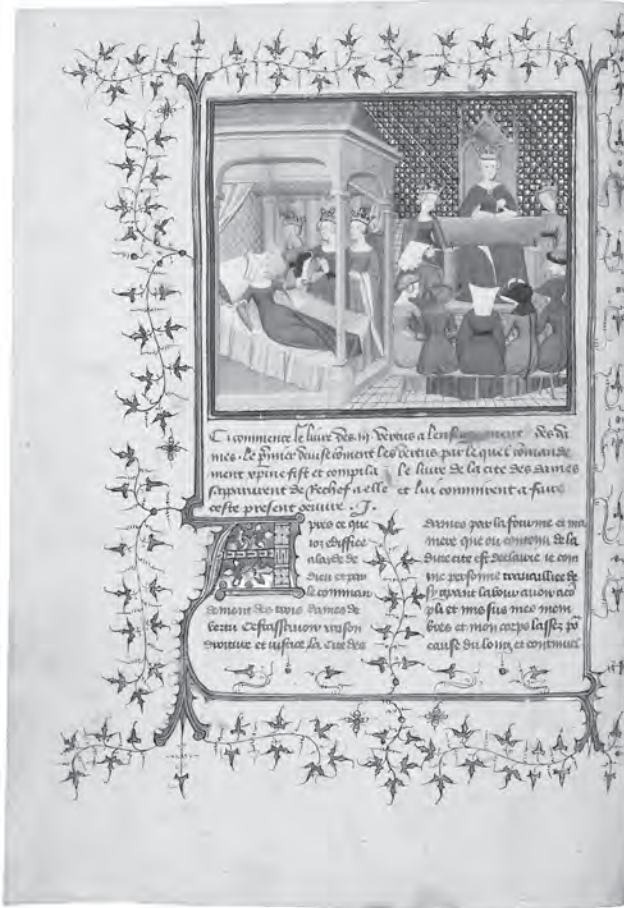 Ci commence le livre des iij vertus a lenseignement des da
mes. Le pmier devise coment les vertus par le quel comande
ment xpine fist et compila le livre de la cite des dames
sapparurent de Rechef a elle et lui commirent a faire
ceste present oeuvre . J.
Apres ce que
joz ediffie
a laide de
dieu et par
le comman
dement des trois dames de
vertu Cestassavoir raison
droiture et justice La Cite des
dames par la fourme et ma
niere que ou contenu de la
dicte cite est declaire ie com
me personne travaillee de
si grant labour avoir aco
pli et mis sus mes mem
bres et mon corps lassez po
cause du long et continuel